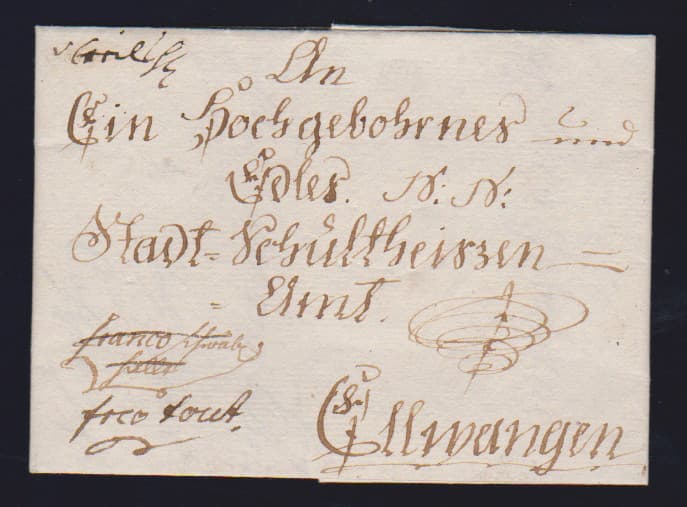 An
Ein Hochgebohrnes und
Edles. N: N:
Stadt = Schultheiszen =
= Amt.
franco
fco tout.
Ellwangen